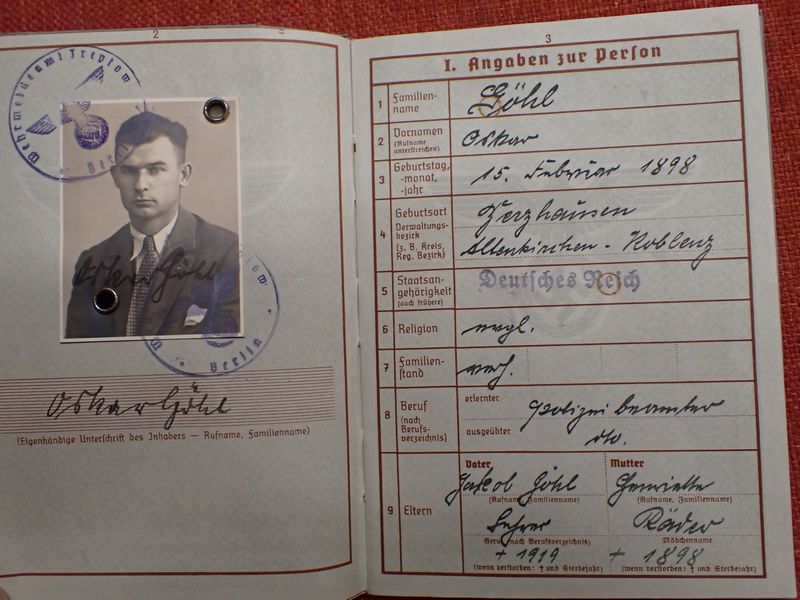 2
Wehrmeldeamt Treptow
Berlin
Oskar Göhl
Treptow
Berlin
Oskar Göhl
(Eigenhändige Unterschrift des Inhabers — Rufname, Familienname)
3
I. Angaben zur Person
1 Familienname Göhl
2 Vornamen (Rufname unterstreichen) Oskar
3 Geburtstag, -monat, -jahr 15. Februar 1898
4 Geburtsort Verwaltungsbezirk (z. B. Kreis, Reg. Bezirk)
Altenkirchen - Koblenz
5 Staatsangehörigkeit (auch frühere) Deutsches Reich
6 Religion evgl.
7 Familienstand verh.
8 Beruf (nach Berufsverzeichnis) erlernter Polizeibeamter
ausgeübter dto.
9 Eltern
Vater Mutter
Jakob Göhl Henriette
(Rufname, Familienname) (Rufname, Familienname)
Lehrer Räder
Beruf (nach Berufsverzeichnis) Mädchenname
† 1919 † 1898
(wenn verstorben: † und Sterbejahr) (wenn verstorben: † und Sterbejahr)